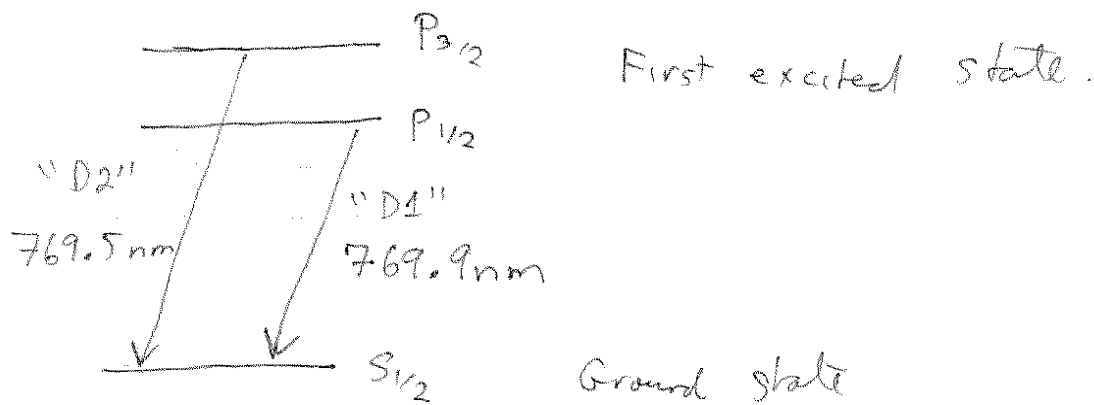 P3/2
First excited state.
P1/2
"D2"
"D1"
769.5nm
769.9nm
S1/2
Ground state